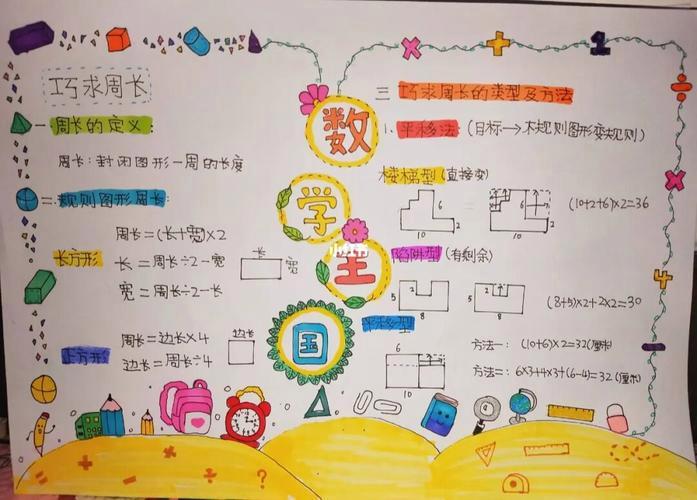 巧求周长
一 周长的定义:
周长:封闭图形一周的长度
二 规则图形周长:
长方形
周长=(长+宽)×2
长=周长÷2-宽
宽=周长÷2-长
长
宽
正方形
周长=边长×4
边长=周长÷4
边长
数
学
王
国
小红书
三 巧求周长的类型及方法
1. 平移法:(目标→不规则图形变规则)
楼梯型(直接变)
6
2
10
6
2
10
(10+2+6)×2=36
陷阱型(有剩余)
5
2
8
5
2
8
(8+5)×2+2×2=30
平移型
6
10
方法一:(10+6)×2=32(厘米)
方法二:6×3+4×3+(6-4)=32(厘米)